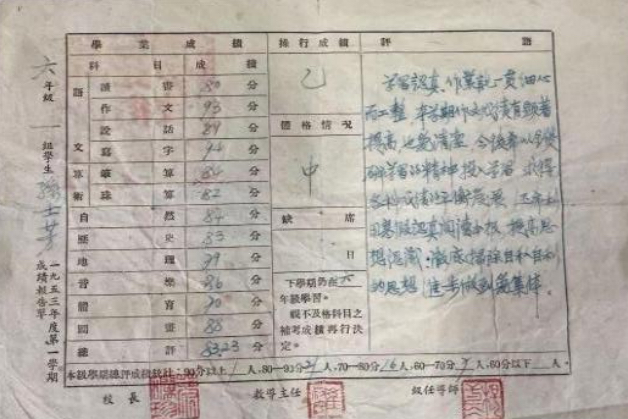 六年級 一 組學生 孫士芽
一九五三年度第一學期
成績報告單
學業成績 操行成績 評語
科目 成績
語文 讀書 80 分
作文 93 分
說話 89 分
寫字 94 分
算術 筆算 84 分
珠算 82 分
自然 84 分
歷史 83 分
地理 79 分
音樂 86 分
體育 70 分
圖畫 85 分
總評 83.23 分
乙
體格情況
中
缺席
日
下學期仍在六
年級學習。
視不及格科目之
補考成績再行決
定。
學習認真，作業能一貫細心
而工整，本學期作文成績有顯著
提高，也愛清潔，今後要以鑽
研學習的精神投入學習，求得
各科成績的平衡發展，
寒假認真閱讀小報，提高思
想認識，徹底掃除自私自利
的思想，進步做到愛集體。
本級學期總評成績統計：90分以上1人，80—90分21人，70—80分16人，60—70分7人，60分以下 人。
校長 教導主任 級任導師